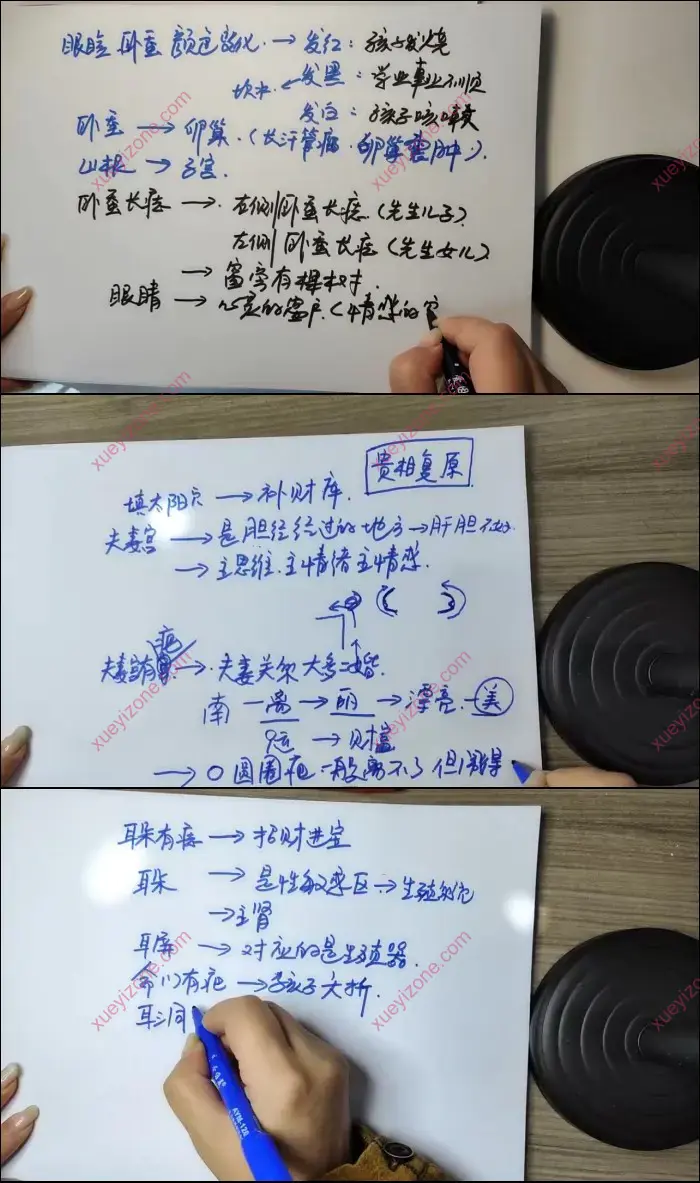 眼睑 卧蚕 颜色变化 → 发红：孩子发烧
坎水 ← 发黑：学业事业不顺
发白：孩子咳嗽
卧蚕 → 卵巢.（长汗管瘤.卵巢囊肿）.
山根 → 子宫.
卧蚕长痣 → 左侧卧蚕长痣（先生儿子）
左侧卧蚕长痣（先生女儿）
→ 富
眼睛 → 心灵的窗户.（情感的
贵相复原
填太阳穴 → 补财库.
夫妻宫 → 是胆经经过的地方 → 肝胆不好.
→ 主思维.主情绪主情感.
疤
夫妻宫有 → 夫妻关系 大多二婚.
南 一离 → 丽 → 漂亮.一美
9运 → 财富
→ O 圆圈疤 一般离不了 但
耳朵有痣 → 招财进宝
耳朵 → 是性敏感区 → 生殖
→ 主肾
耳屏 → 对应的是生殖器.
命门有疤 → 孩子夭折.
耳洞
xueyizone.com
xueyizone.com
xueyizone.com
xueyizone.com
xueyizone.com
xueyizone.com
xueyizone.com
xueyizone.com
xueyizone.com
xueyizone.com
xueyizone.com
xueyizone.com